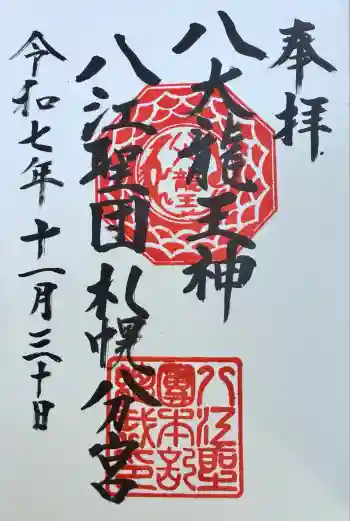 奉拝
八大龍王神
八江聖団 札幌分宮
令和七年 十一月三十日
龍王
八江聖
團本部